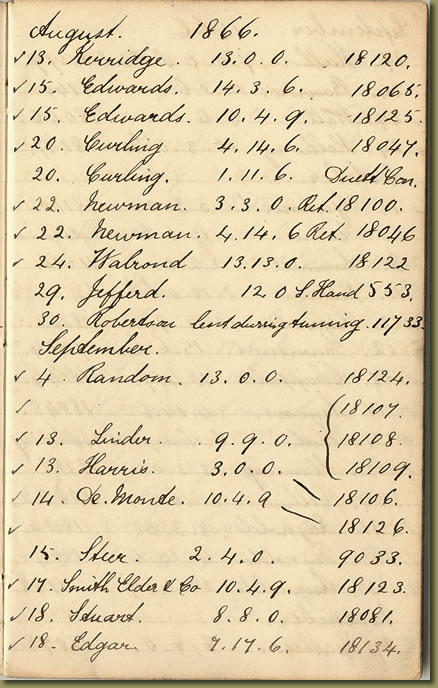 August. 1866.
✓ 13. Kerridge. 13.0.0. 18120.
✓ 15 Edwards. 14.3.6. 18065.
✓ 15. Edwards. 10.4.9. 18125.
✓ 20 Curling 4.14.6. 18047.
20. Curling. 1.11.6. Duett Con.
✓ 22. Newman. 3.3.0. Ret. 18100.
✓ 22. Newman. 4.14.6 Ret. 18046
✓ 24. Walrond 13.13.0. 18122
29. Jefferd. 12.0 S. Hand 553.
30. Robertson lent during tuning. 11733.
September.
✓ 4. Random. 13.0.0. 18124.
✓ 18107.
✓ 13. Linder. 9.9.0. 18108.
✓ 13. Harris. 3.0.0. 18109.
✓ 14. De. Monte. 10.4.9 18106.
✓ 18126.
15. Steer. 2.4.0. 9033.
✓ 17. Smith Elder & Co 10.4.9. 18123.
✓ 18. Stuart. 8.8.0. 18081.
✓ 18. Edgar. 7.17.6. 18134.